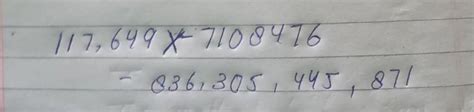 117,649 x 7108476
- 836,305,445,871